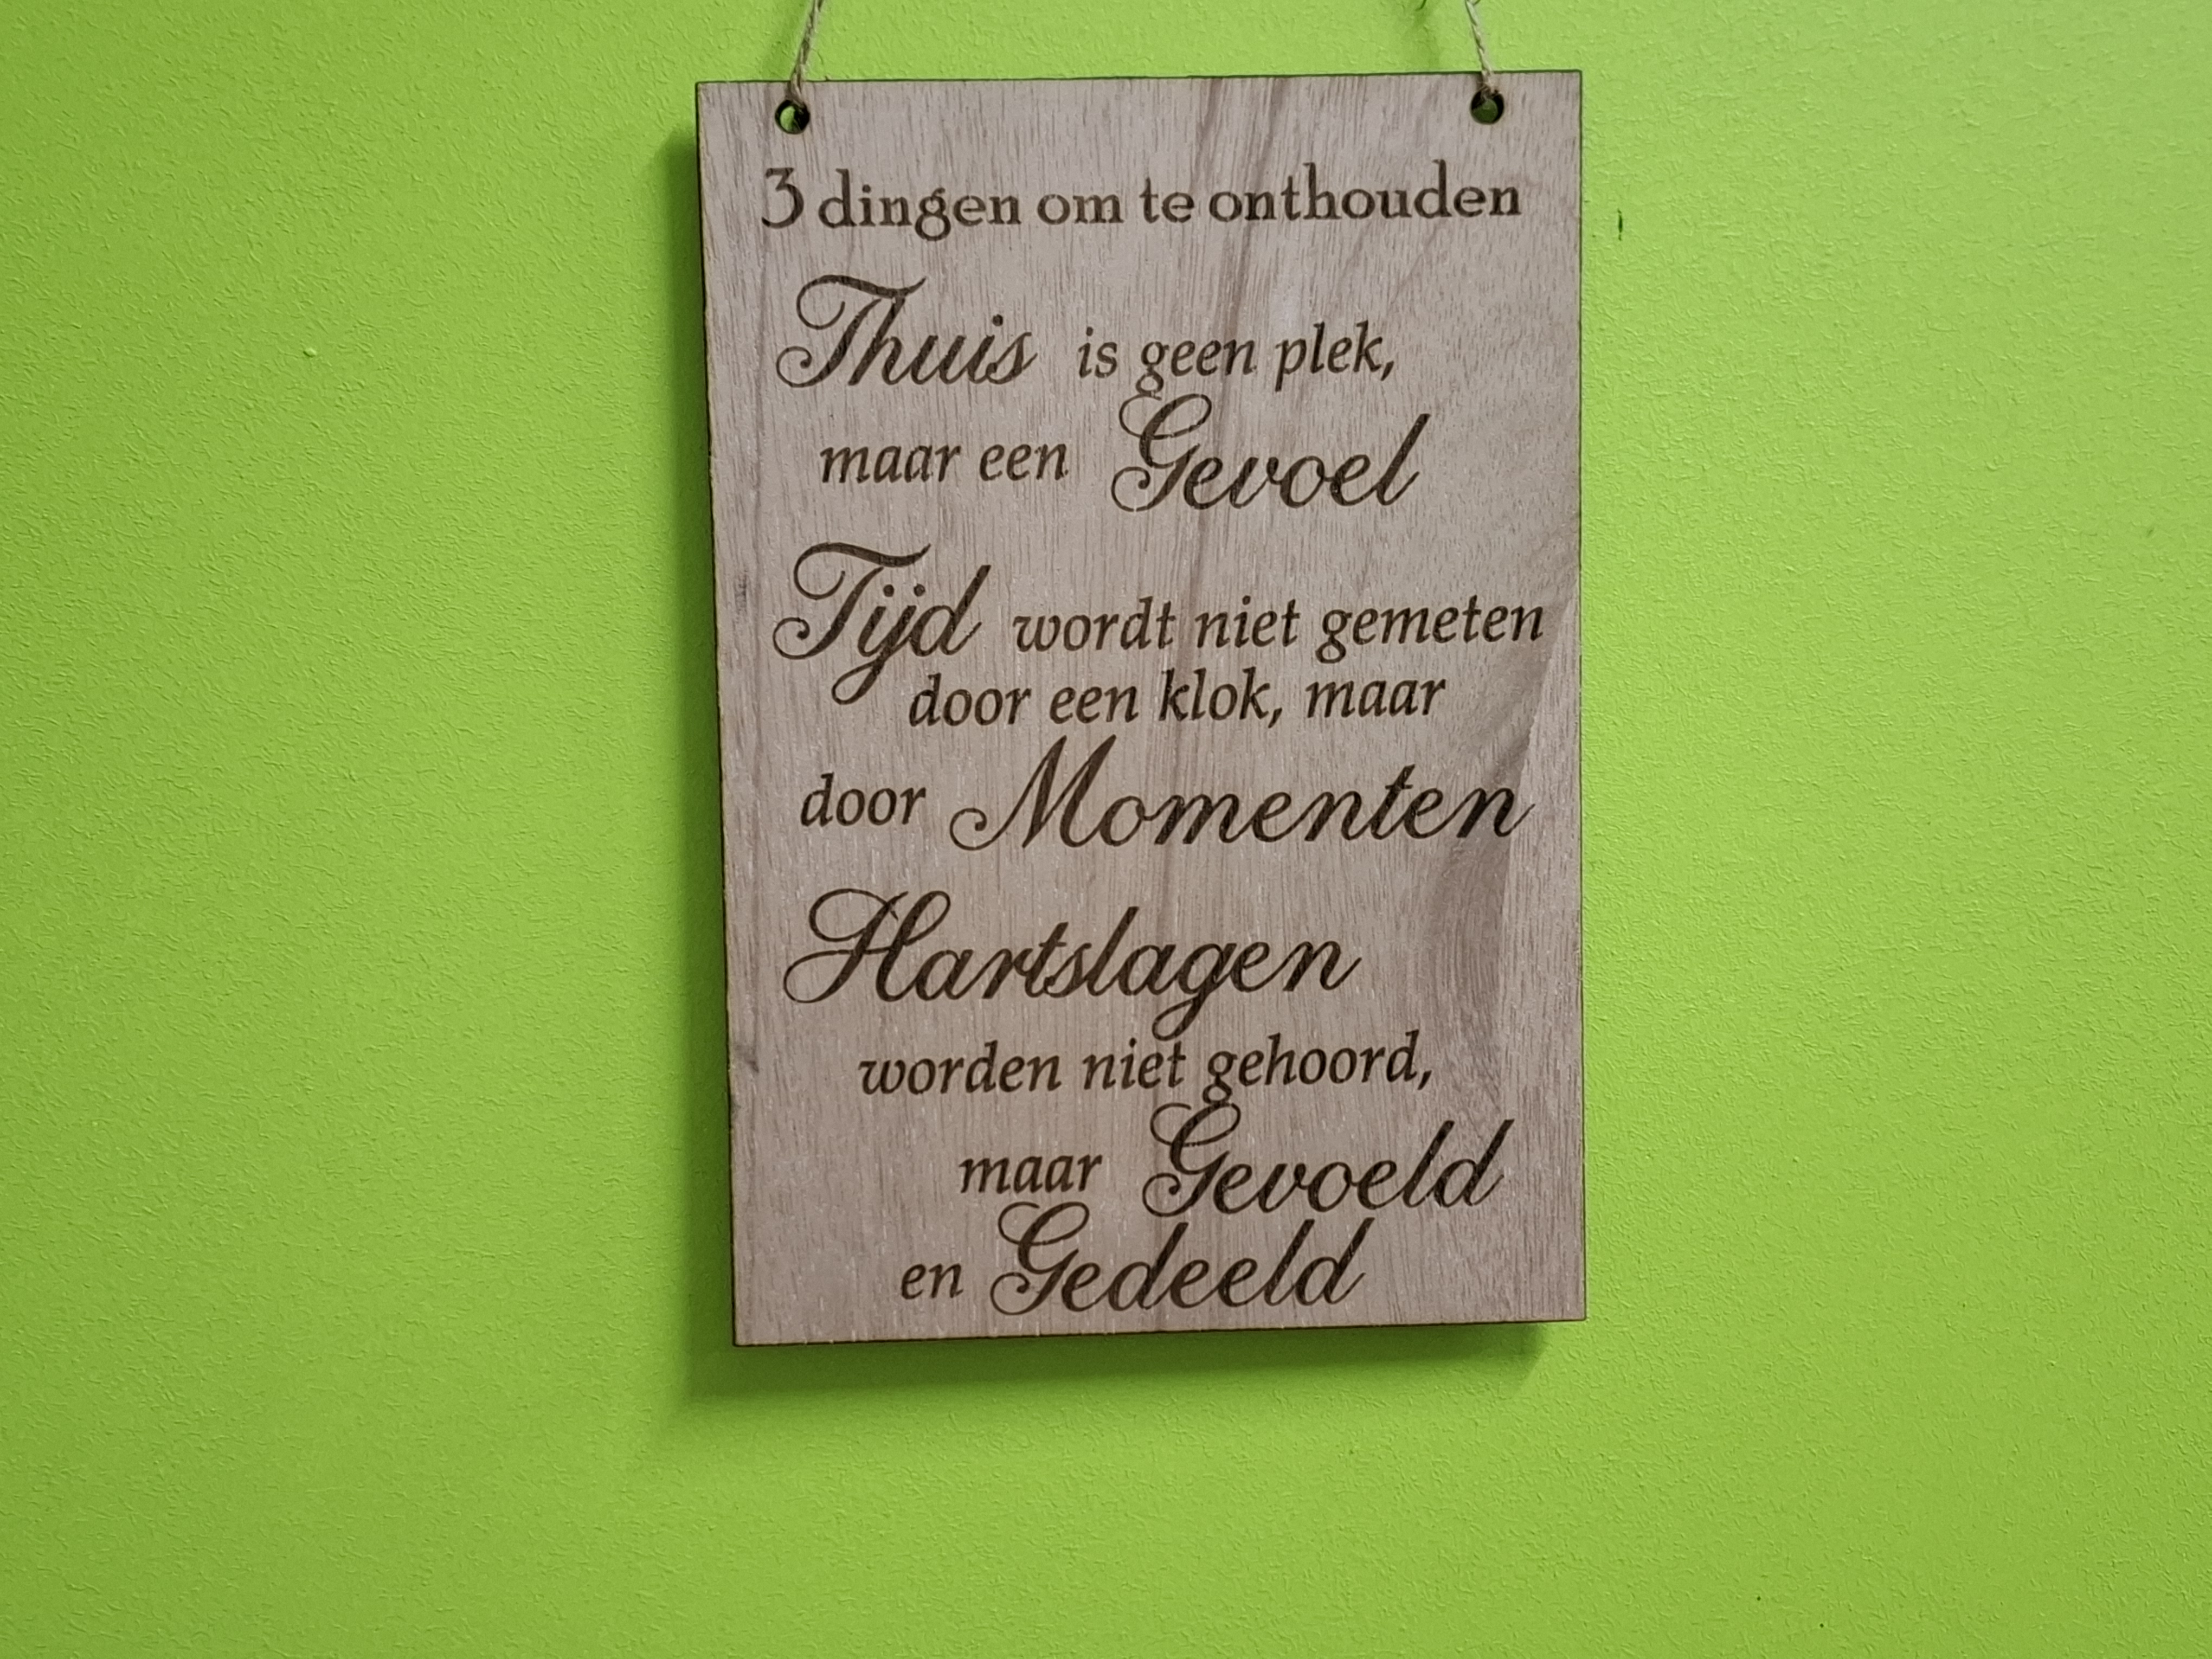 3 dingen om te onthouden
Thuis is geen plek,
maar een Gevoel
Tijd wordt niet gemeten
door een klok, maar
door Momenten
Hartslagen
worden niet gehoord,
maar Gevoeld
en Gedeeld